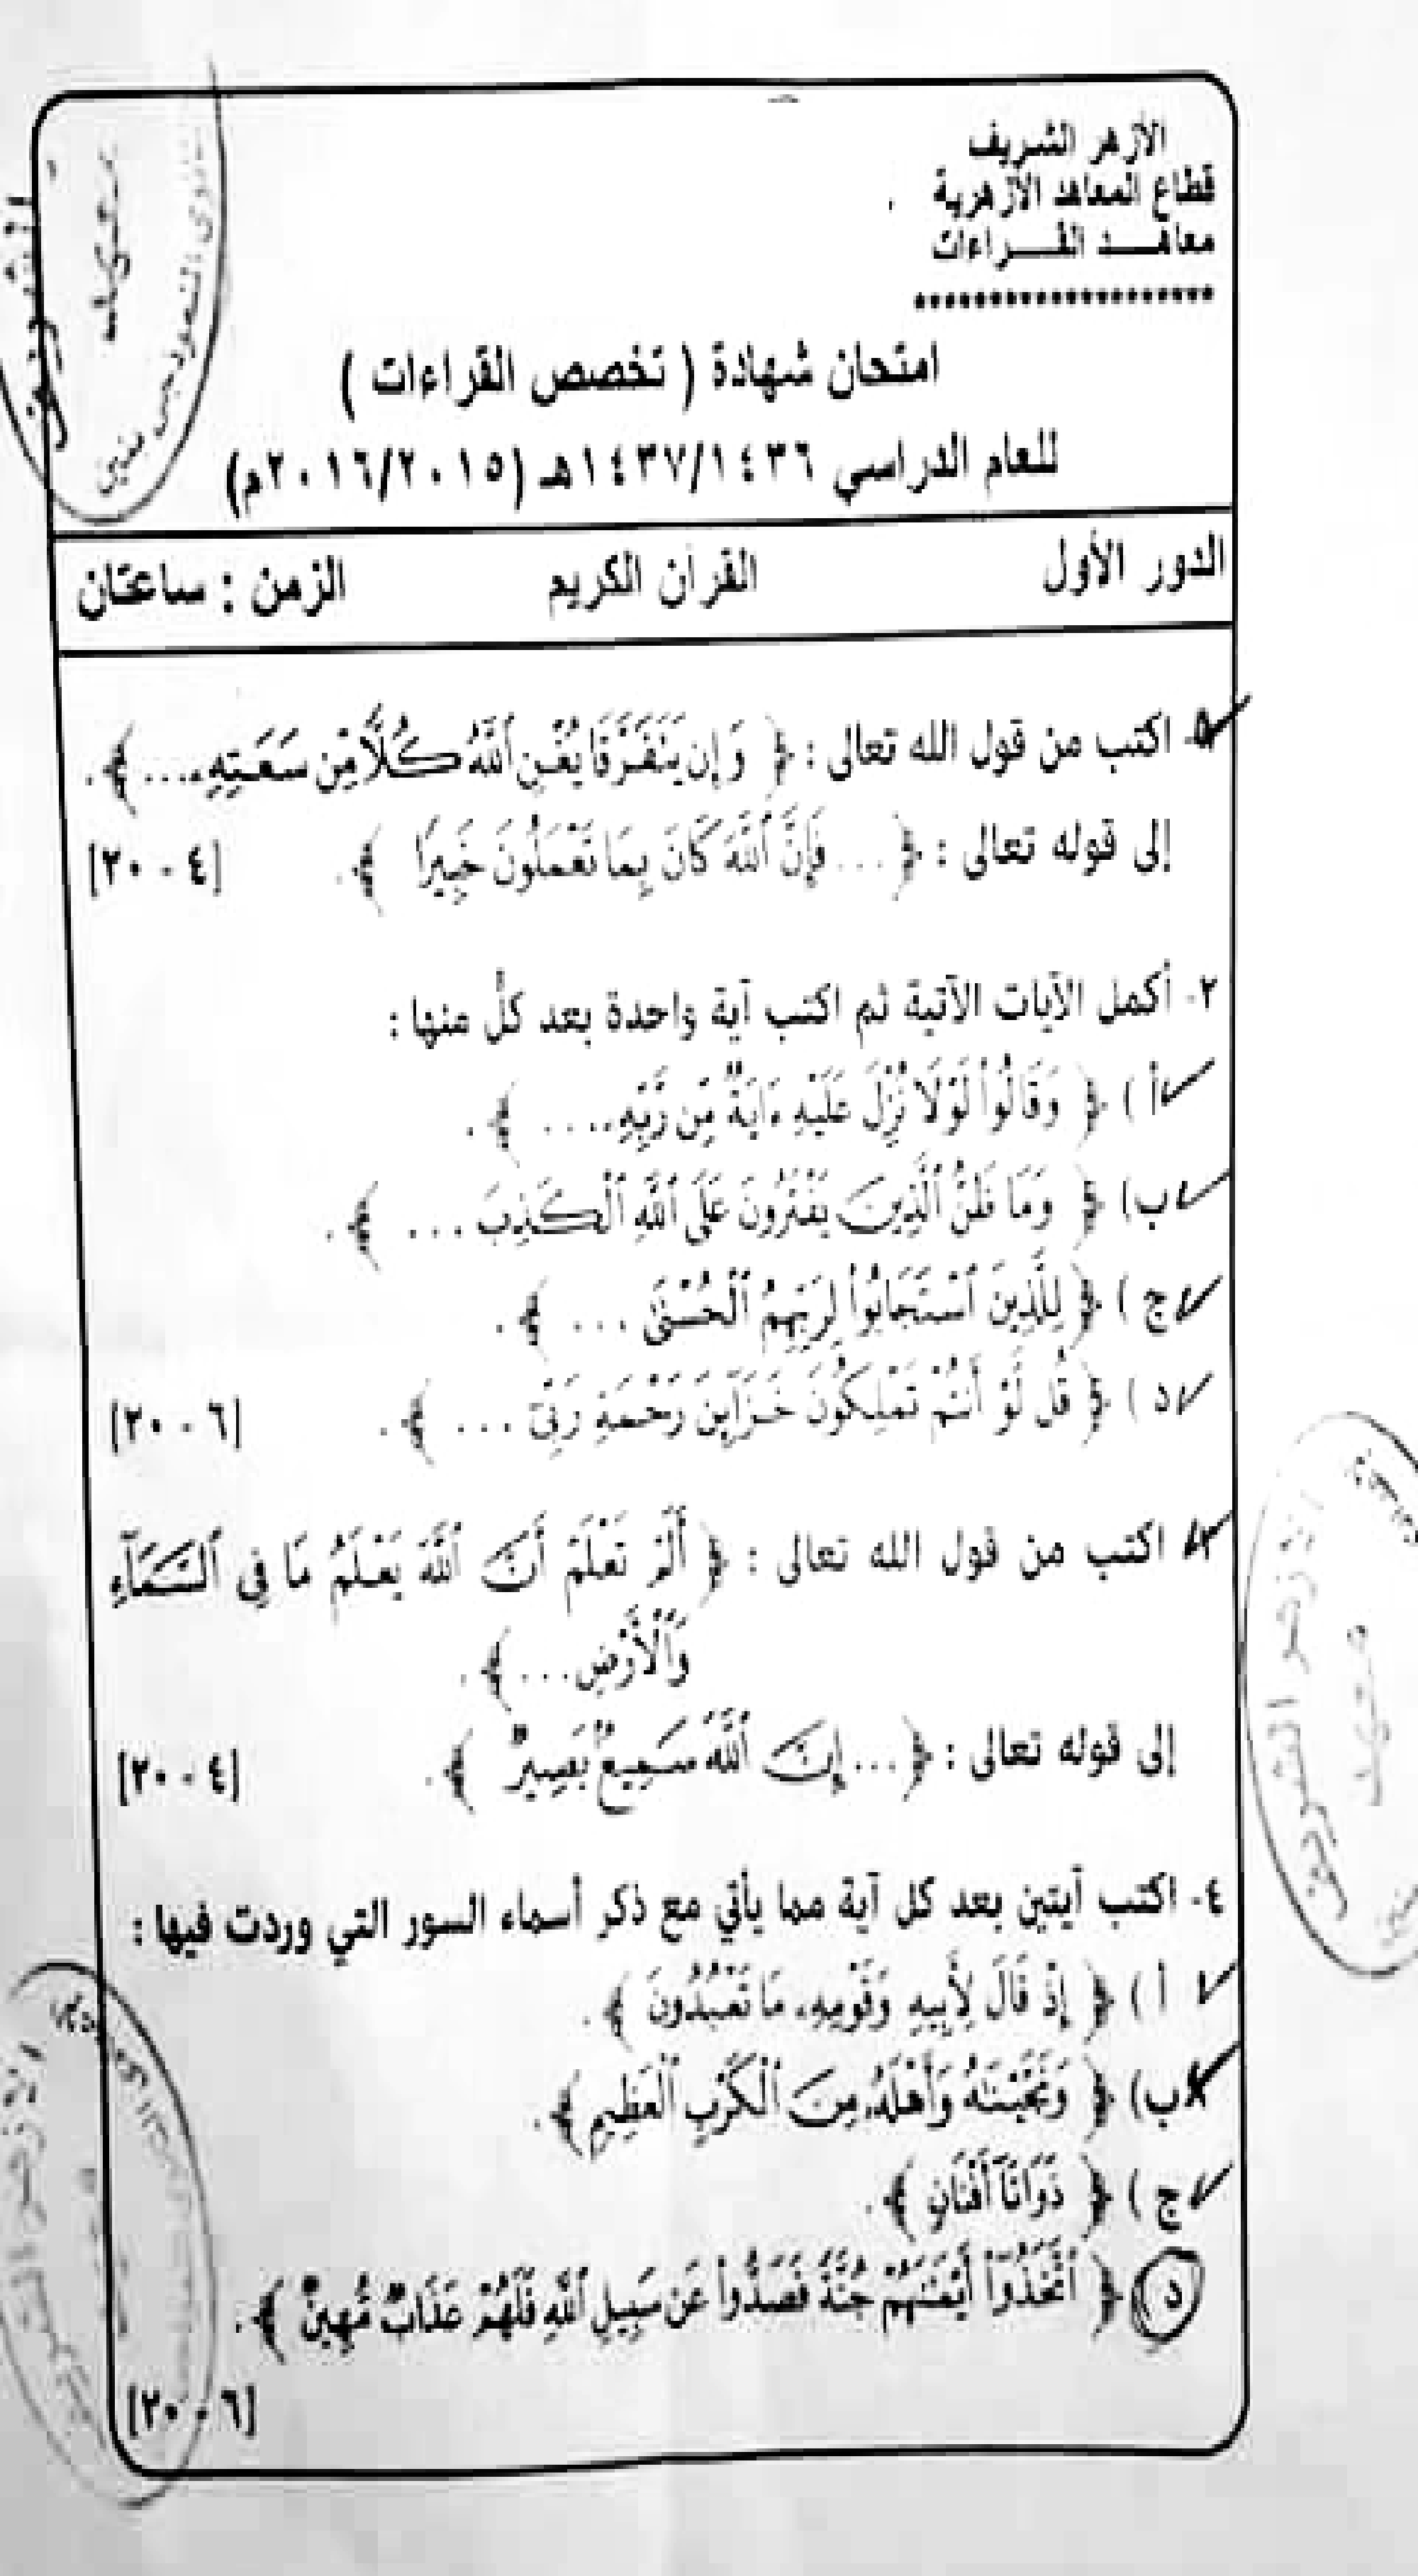 الأزهر الشريف
قطاع المعاهد الأزهرية
معاهـــد القـــراءات
********************
امتحان شهادة ( تخصص القراءات )
للعام الدراسي ١٤٣٧/١٤٣٦هـ (٢٠١٦/٢٠١٥م)
الدور الأول القرآن الكريم الزمن : ساعتان
اكتب من قول الله تعالى : ﴿ وَإِن يَتَفَرَّقَا يُغْنِ ٱللَّهُ كُلًّا مِّن سَعَتِهِۦ... ﴾.
إلى قوله تعالى : ﴿ ... فَإِنَّ ٱللَّهَ كَانَ بِمَا تَعْمَلُونَ خَبِيرًا ﴾. [٤ - ٢٠]
٢- أكمل الآيات الآتية ثم اكتب آية واحدة بعد كلٍّ منها :
أ ) ﴿ وَقَالُوا۟ لَوْلَا نُزِّلَ عَلَيْهِ ءَايَةٌ مِّن رَّبِّهِۦ... ﴾.
ب) ﴿ وَمَا ظَنُّ ٱلَّذِينَ يَفْتَرُونَ عَلَى ٱللَّهِ ٱلْكَذِبَ ... ﴾.
ج ) ﴿ لِلَّذِينَ ٱسْتَجَابُوا۟ لِرَبِّهِمُ ٱلْحُسْنَىٰ ... ﴾.
د ) ﴿ قُل لَّوْ أَنتُمْ تَمْلِكُونَ خَزَآئِنَ رَحْمَةِ رَبِّىٓ ... ﴾. [٦ - ٢٠]
٣- اكتب من قول الله تعالى : ﴿ أَلَمْ تَعْلَمْ أَنَّ ٱللَّهَ يَعْلَمُ مَا فِى ٱلسَّمَآءِ
وَٱلْأَرْضِ... ﴾.
إلى قوله تعالى : ﴿ ... إِنَّ ٱللَّهَ سَمِيعٌۢ بَصِيرٌ ﴾. [٤ - ٢٠]
٤- اكتب آيتين بعد كل آية مما يأتي مع ذكر أسماء السور التي وردت فيها :
أ ) ﴿ إِذْ قَالَ لِأَبِيهِ وَقَوْمِهِۦ مَا تَعْبُدُونَ ﴾.
ب) ﴿ وَنَجَّيْنَـٰهُ وَأَهْلَهُۥ مِنَ ٱلْكَرْبِ ٱلْعَظِيمِ ﴾.
ج ) ﴿ ذَوَاتَآ أَفْنَانٍ ﴾.
د ﴿ ٱتَّخَذُوٓا۟ أَيْمَـٰنَهُمْ جُنَّةً فَصَدُّوا۟ عَن سَبِيلِ ٱللَّهِ فَلَهُمْ عَذَابٌ مُّهِينٌ ﴾.
[٦ - ٢٠]